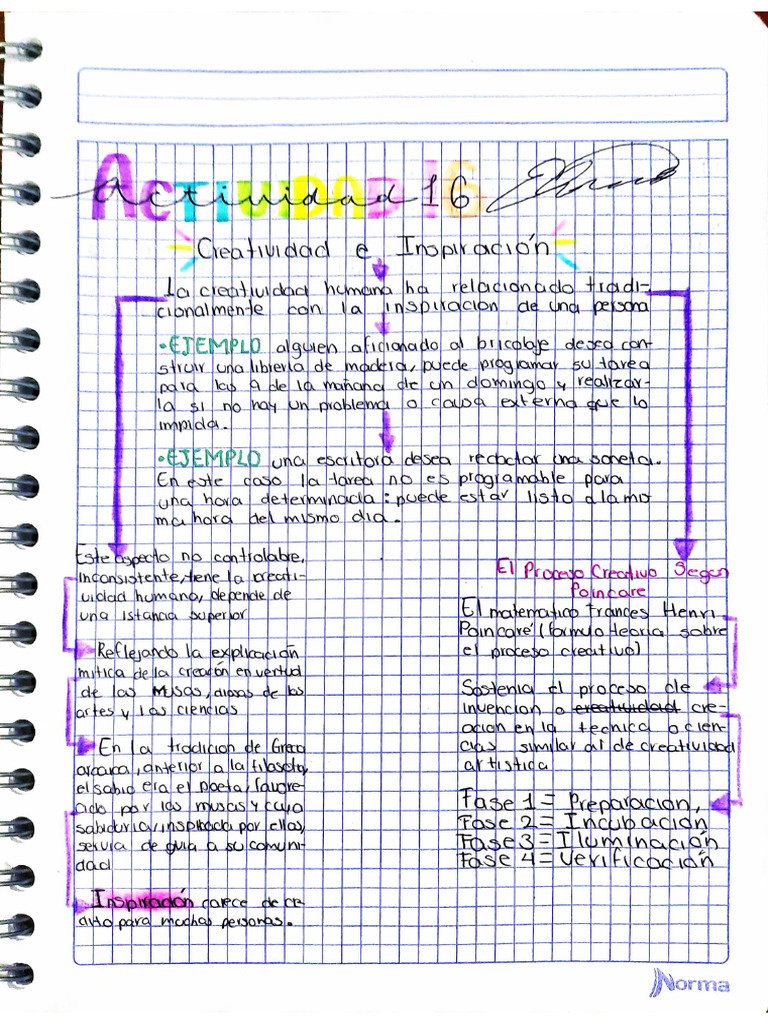 Actividad 16
Creatividad e Inspiración
La creatividad humana ha relacionado tradi-
cionalmente con la inspiracion de una persona
• EJEMPLO alguien aficionado al bricolaje desea con-
struir una libreria de madera, puede programar su tarea
para las 9 de la mañana de un domingo y realizar-
la si no hay un problema o causa externa que lo
impida.
• EJEMPLO una escritora desea redactar una soneto.
En este caso la tarea no es programable para
una hora determinada: puede estar listo a la mis
ma hora del mismo dia.
Este aspecto no controlable,
inconsistente, tiene la creati-
vidad humana, depende de
una istancia superior
Reflejando la explicación
mitica de la creación en vertud
de las Musas, diosas de las
artes y las ciencias
En la tradicion de Grecia
arcaica, anterior a la filosofia,
el sabio era el poeta, favore-
cido por las musas y cuya
sabiduria, inspirada por ellas,
servia de guia a su comuni-
dad
Inspiración carece de cr-
dito para muchas personas.
El Proceso Creativo Segun
Poincare
El matematico frances Henri
Poincaré (formulo teoria sobre
el proceso creativo)
Sostenia el proceso de
invencion o creatividad cre-
acion en la tecnica o cien-
cias similar al de creatividad
artistica
Fase 1 = Preparacion,
Fase 2 = Incubación
Fase 3 = Iluminación
Fase 4 = Verificación
Norma